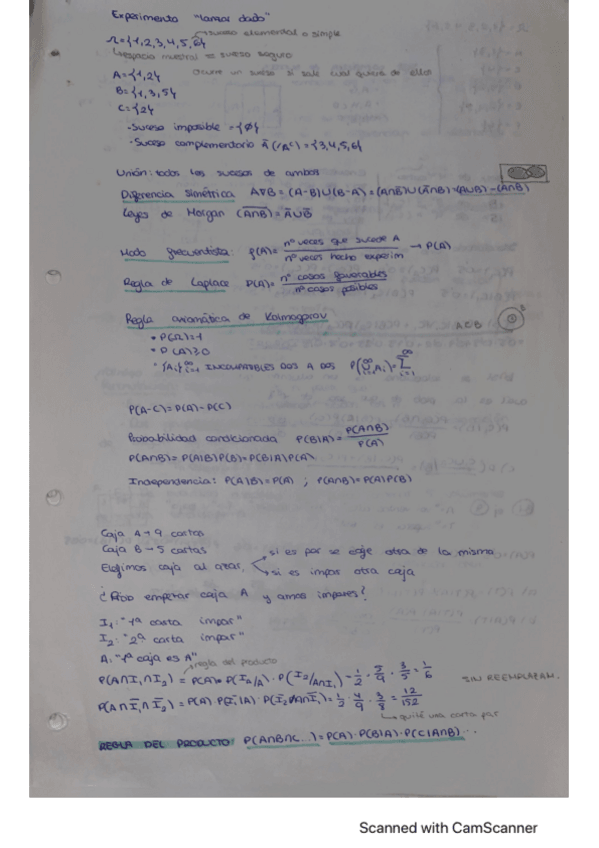 Experimento "lanzar dado"
Ω={1,2,3,4,5,6} → suceso elemental o simple
↳ espacio muestral = suceso seguro
A={1,2} Ocurre un suceso si sale cualquiera de ellos
B={1,3,5}
C={2}
- Suceso imposible = {Ø}
- Suceso complementario Ā (/Aᶜ) = {3,4,5,6}
Unión: todos los sucesos de ambos
Diferencia simétrica A∇B = (A-B)∪(B-A) = (A∩B̄)∪(Ā∩B) = (A∪B) - (A∩B)
Leyes de Morgan (A∩B)‾ = Ā∪B̄
Modo frecuentista: f(A) = nº veces que sucede A / nº veces hecho experim → P(A)
Regla de Laplace P(A) = nº casos favorables / nº casos posibles
Regla axiomática de Kolmogorov A⊂B
• P(Ω)=1
• P(A)≥0
• {Aᵢ}∞ᵢ₌₁ INCOMPATIBLES DOS A DOS P(∪∞ᵢ₌₁ Aᵢ) = Σ∞ᵢ₌₁
P(A-C)=P(A)-P(C)
Probabilidad condicionada P(B|A) = P(A∩B) / P(A)
P(A∩B) = P(A|B)P(B) = P(B|A)P(A)
Independencia: P(A|B) = P(A) ; P(A∩B) = P(A)P(B)
Caja A → 9 cartas
Caja B → 5 cartas
Elegimos caja al azar, → si es par se coje otra de la misma
→ si es impar otra caja
¿Prob empezar caja A y ambos impares?
I₁: "1ª carta impar"
I₂: "2ª carta impar"
A: "1ª caja es A"
regla del producto
P(A∩I₁∩I₂) = P(A)· P(I₁/A) · P(I₂/A∩I₁) = 1/2 · 5/9 · 3/5 = 1/6 SIN REEMPLAZAM.
P(A∩Ī₁∩Ī₂) = P(A)· P(Ī₁|A) · P(Ī₂/A∩Ī₁) = 1/2 · 4/9 · 3/8 = 12/152
↳ quité una carta par
REGLA DEL PRODUCTO: P(A∩B∩C...) = P(A)· P(B|A) · P(C|A∩B) ...
Scanned with CamScanner